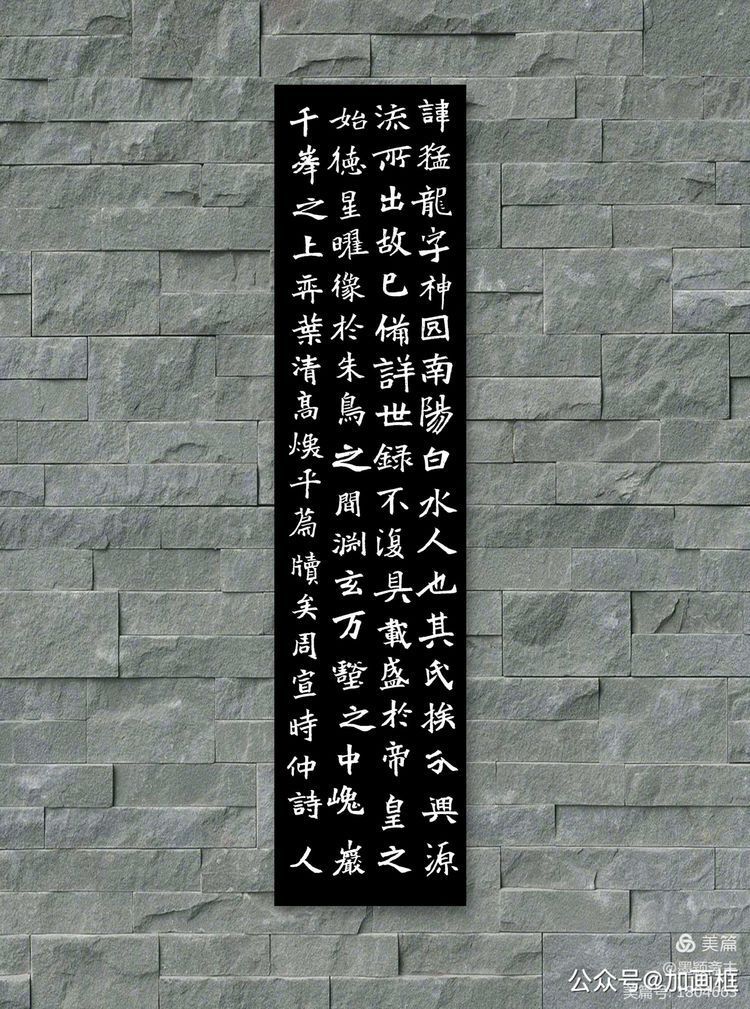 諱猛龍字神囙南陽白水人也其氏挨分興源
流所出故已備詳世録不復具載盛於帝皇之
始德星曜像於朱鳥之間渊玄万壑之中嵬巖
千峯之上弈葉清高煥乎篇牘矣周宣時仲詩人
美篇
公众号@加画框